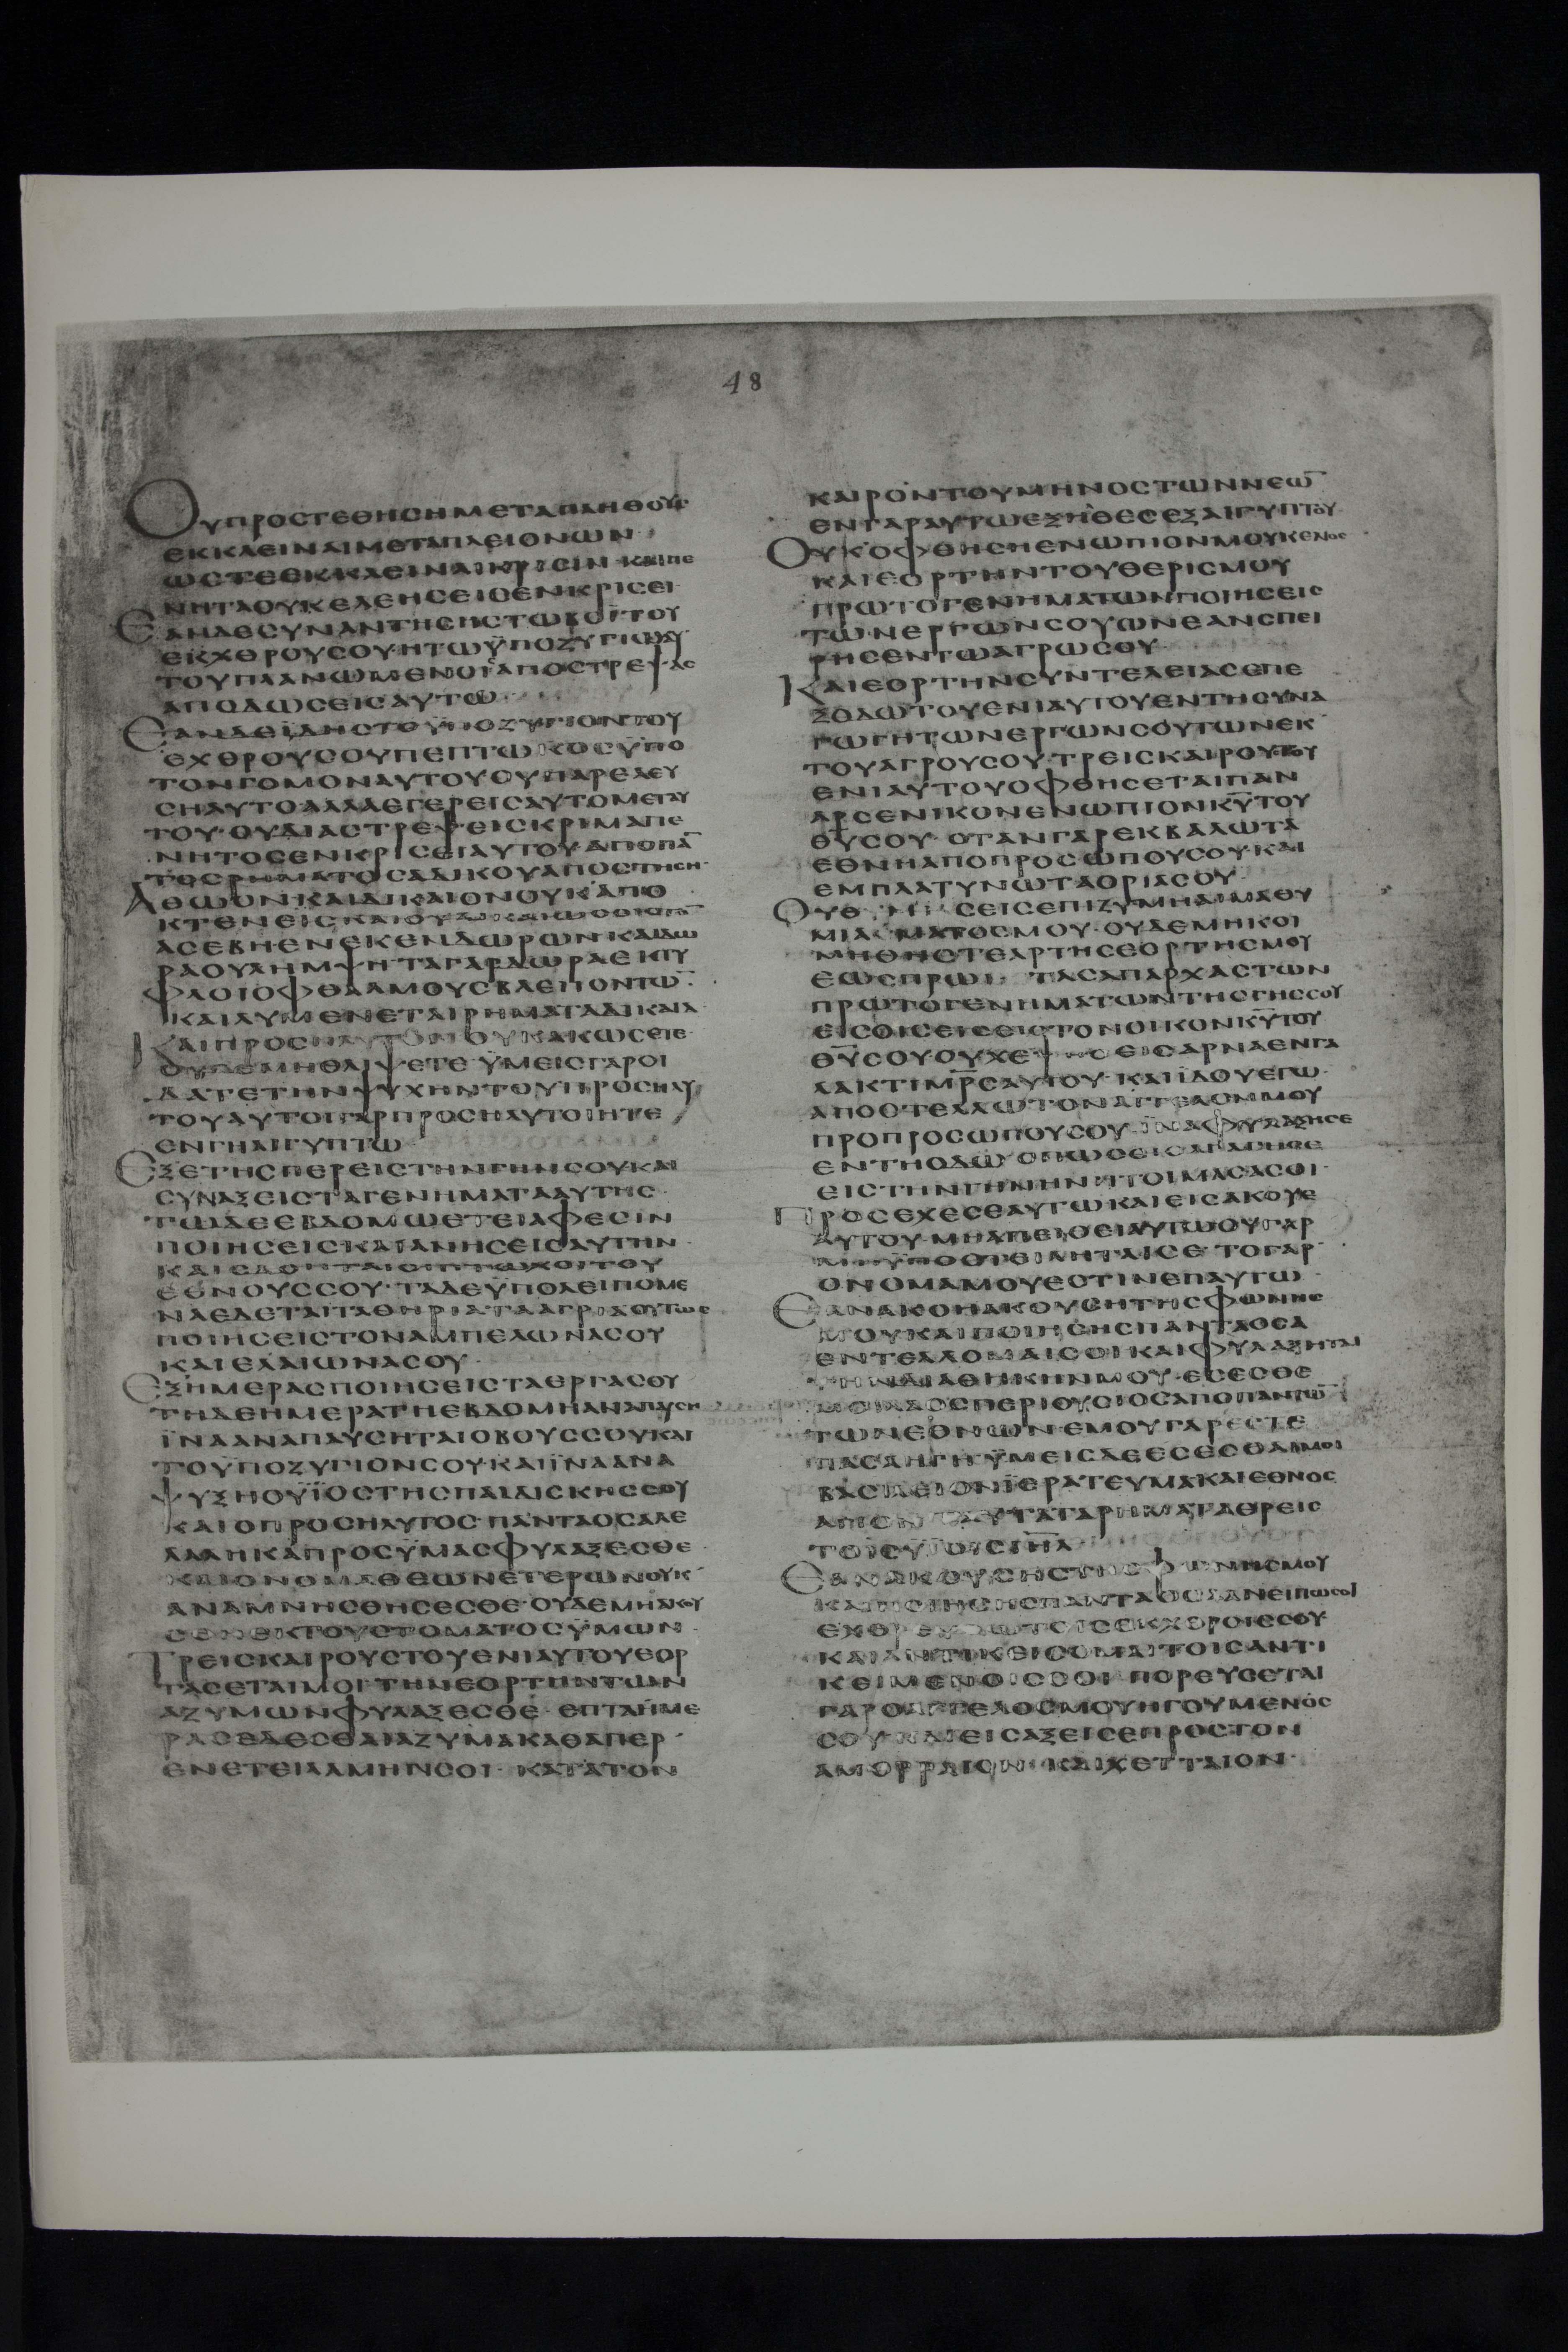 48
ΟΥΠΡΟΣΤΕΘΗϹΗΜΕΤΑΠΛΗΘΟΥϹ
ΕΚΚΛΕΙΝΑΙΜΕΤΑΠΛΕΙΟΝΩΝ·
ΩϹΤΕΕΚΚΛΕΙΝΑΙΚΡΙϹΙΝ·ΚΑΙΠΕ
ΝΗΤΑΟΥΚΕΛΕΗϹΕΙϹΕΝΚΡΙϹΕΙ·
ΕΑΝΔΕϹΥΝΑΝΤΗϹΗϹΤΩΒΟΪΤΟΥ
ΕΚΧΘΡΟΥϹΟΥ·ΗΤΩΫΠΟΖΥΓΙΩΑΥ
ΤΟΥΠΛΑΝΩΜΕΝΟΙϹΑΠΟϹΤΡΕΨΑϹ
ΑΠΟΔΩϹΕΙϹΑΥΤΩ·
ΕΑΝΔΕΪΔΗϹΤΟΫΠΟΖΥΓΙΟΝΤΟΥ
ΕΧΘΡΟΥϹΟΥΠΕΠΤΩΚΟϹΫΠΟ
ΤΟΝΓΟΜΟΝΑΥΤΟΥΟΥΠΑΡΕΛΕΥ
ϹΗΑΥΤΟΑΛΛΑΕΓΕΡΕΙϹΑΥΤΟΜΕΤΑΥ
ΤΟΥ·ΟΥΔΙΑϹΤΡΕΨΕΙϹΚΡΙΜΑΠΕ
ΝΗΤΟϹΕΝΚΡΙϹΕΙΑΥΤΟΥ·ΑΠΟΠΑ̅
ΤΟϹΡΗΜΑΤΟϹΑΔΙΚΟΥΑΠΟϹΤΗϹΗ·
ΑΘΩΟΝΚΑΙΔΙΚΑΙΟΝΟΥΚΑΠΟ
ΚΤΕΝΕΙϹΚΑΙΟΥΔΙΚΑΙΩϹΕΙϹΤΟ̅
ΑϹΕΒΗΕΝΕΚΕΝΔΩΡΩΝΚΑΙΔΩ
ΡΑΟΥΛΗΜΨΗΤΑΓΑΡΔΩΡΑΕΚΤΥ
ΦΛΟΙΟΦΘΑΛΜΟΥϹΒΛΕΠΟΝΤΩ̅·
ΚΑΙΛΥΜΕΝΕΤΑΙΡΗΜΑΤΑΔΙΚΑΙΑ
ΚΑΙΠΡΟϹΗΛΥΤΟΝΟΥΚΑΚΩϹΕΤΕ·
ΟΥΔΕΜΗΘΛΙΨΕΤΕ·ΫΜΕΙϹΓΑΡΟΙ
ΔΑΤΕΤΗΝΨΥΧΗΝΤΟΥΠΡΟϹΗΛΥ
ΤΟΥΑΥΤΟΙΓΑΡΠΡΟϹΗΛΥΤΟΙΗΤΕ
ΕΝΓΗΑΙΓΥΠΤΩ·
ΕΞΕΤΗϹΠΕΡΕΙϹΤΗΝΓΗΝϹΟΥΚΑΙ
ϹΥΝΑΞΕΙϹΤΑΓΕΝΗΜΑΤΑΑΥΤΗϹ·
ΤΩΔΕΕΒΔΟΜΩΕΤΕΙΑΦΕϹΙΝ
ΠΟΙΗϹΕΙϹΚΑΙΑΝΗϹΕΙϹΑΥΤΗΝ·
ΚΑΙΕΔΟΝΤΑΙΟΙΠΤΩΧΟΙΤΟΥ
ΕΘΝΟΥϹϹΟΥ·ΤΑΔΕΫΠΟΛΕΙΠΟΜΕ
ΝΑΕΔΕΤΑΙΤΑΘΗΡΙΑΤΑΑΓΡΙΑΟΥΤΩϹ
ΠΟΙΗϹΕΙϹΤΟΝΑΜΠΕΛΩΝΑϹΟΥ
ΚΑΙΕΛΑΙΩΝΑϹΟΥ·
ΕΞΗΜΕΡΑϹΠΟΙΗϹΕΙϹΤΑΕΡΓΑϹΟΥ
ΤΗΔΕΗΜΕΡΑΤΗΕΒΔΟΜΗΑΝΑΠΑΥϹΗ
ΪΝΑΑΝΑΠΑΥϹΗΤΑΙΟΒΟΥϹϹΟΥΚΑΙ
ΤΟΫΠΟΖΥΓΙΟΝϹΟΥ·ΚΑΙΪΝΑΑΝΑ
ΨΥΞΗΟΫΪΟϹΤΗϹΠΑΙΔΙϹΚΗϹϹΟΥ
ΚΑΙΟΠΡΟϹΗΛΥΤΟϹ·ΠΑΝΤΑΟϹΑΛΕ
ΛΑΛΗΚΑΠΡΟϹΥΜΑϹΦΥΛΑΞΕϹΘΕ·
ΚΑΙΟΝΟΜΑΘΕΩΝΕΤΕΡΩΝΟΥΚ
ΑΝΑΜΝΗϹΘΗϹΕϹΘΕ·ΟΥΔΕΜΗΑΚΟΥ
ϹΘΗΕΚΤΟΥϹΤΟΜΑΤΟϹΫΜΩΝ·
ΤΡΕΙϹΚΑΙΡΟΥϹΤΟΥΕΝΙΑΥΤΟΥΕΟΡ
ΤΑϹΕΤΑΙΜΟΙ·ΤΗΝΕΟΡΤΗΝΤΩΝ
ΑΖΥΜΩΝΦΥΛΑΞΕϹΘΕ·ΕΠΤΑΗΜΕ
ΡΑϹΕΔΕϹΘΑΙΑΖΥΜΑΚΑΘΑΠΕΡ
ΕΝΕΤΕΙΛΑΜΗΝϹΟΙ·ΚΑΤΑΤΟΝ
ΚΑΙΡΟΝΤΟΥΜΗΝΟϹΤΩΝΝΕΩ̅
ΕΝΓΑΡΑΥΤΩΕΞΗΘΕϹΕΞΑΙΓΥΠΤΟΥ·
ΟΥΚΟΦΘΗϹΗΕΝΩΠΙΟΝΜΟΥΚΕΝΟϹ
ΚΑΙΕΟΡΤΗΝΤΟΥΘΕΡΙϹΜΟΥ
ΠΡΩΤΟΓΕΝΗΜΑΤΩΝΠΟΙΗϹΕΙϹ
ΤΩΝΕΡΓΩΝϹΟΥΩΝΕΑΝϹΠΕΙ
ΡΗϹΕΝΤΩΑΓΡΩϹΟΥ·
ΚΑΙΕΟΡΤΗΝϹΥΝΤΕΛΕΙΑϹΕΠΕ
ΞΟΔΩΤΟΥΕΝΙΑΥΤΟΥΕΝΤΗϹΥΝΑ
ΓΩΓΗΤΩΝΕΡΓΩΝϹΟΥΤΩΝΕΚ
ΤΟΥΑΓΡΟΥϹΟΥ·ΤΡΕΙϹΚΑΙΡΟΥϹΤΟΥ
ΕΝΙΑΥΤΟΥΟΦΘΗϹΕΤΑΙΠΑΝ
ΑΡϹΕΝΙΚΟΝΕΝΩΠΙΟΝΚ̅Υ̅ΤΟΥ
Θ̅Υ̅ϹΟΥ·ΟΤΑΝΓΑΡΕΚΒΑΛΩΤΑ
ΕΘΝΗΑΠΟΠΡΟϹΩΠΟΥϹΟΥ·ΚΑΙ
ΕΜΠΛΑΤΥΝΩΤΑΟΡΙΑϹΟΥ·
ΟΥΘΥΜΙΑϹΕΙϹΕΠΙΖΥΜΗΑΙΜΑΘΥ
ΜΙΑϹΜΑΤΟϹΜΟΥ·ΟΥΔΕΜΗΚΟΙ
ΜΗΘΗϹΤΕΑΡΤΗϹΕΟΡΤΗϹΜΟΥ
ΕΩϹΠΡΩΙ· ΤΑϹΑΠΑΡΧΑϹΤΩΝ
ΠΡΩΤΟΓΕΝΗΜΑΤΩΝΤΗϹΓΗϹϹΟΥ
ΕΙϹΟΙϹΕΙϹΕΙϹΤΟΝΟΙΚΟΝΚ̅Υ̅ΤΟΥ
Θ̅Υ̅ϹΟΥ·ΟΥΧΕΨΗϹΕΙϹΑΡΝΑΕΝΓΑ
ΛΑΚΤΙΜ̅Ρ̅ϹΑΥΤΟΥ·ΚΑΙΪΔΟΥΕΓΩ
ΑΠΟϹΤΕΛΛΩΤΟΝΑΓΓΕΛΟΝΜΟΥ
ΠΡΟΠΡΟϹΩΠΟΥϹΟΥ·ΪΝΑΦΥΛΑΞΗϹΕ
ΕΝΤΗΟΔΩΟΠΩϹΕΙϹΑΓΑΓΗϹΕ
ΕΙϹΤΗΝΓΗΝΗΝΗΤΟΙΜΑϹΑϹΟΙ·
ΠΡΟϹΕΧΕϹΕΑΥΤΩΚΑΙΕΙϹΑΚΟΥΕ
ΑΥΤΟΥ·ΜΗΑΠΕΙΘΕΙΑΥΤΩΟΥΓΑΡ
ΜΗΫΠΟϹΤΕΙΛΗΤΑΙϹΕ·ΤΟΓΑΡ
ΟΝΟΜΑΜΟΥΕϹΤΙΝΕΠΑΥΤΩ·
ΕΑΝΑΚΟΗΑΚΟΥϹΗΤΗϹΦΩΝΗϹ
ΜΟΥΚΑΙΠΟΙΗϹΗϹΠΑΝΤΑΟϹΑ
ΕΝΤΕΛΛΟΜΑΙϹΟΙΚΑΙΦΥΛΑΞΗΤΑΙ
ΤΗΝΔΙΑΘΗΚΗΝΜΟΥ·ΕϹΕϹΘΕ
ΜΟΙΛΑΟϹΠΕΡΙΟΥϹΙΟϹΑΠΟΠΑΝΤΩ̅
ΤΩΝΕΘΝΩΝΕΜΟΥΓΑΡΕϹΤΕ
ΠΑϹΑΗΓΗ·ΫΜΕΙϹΔΕΕϹΕϹΘΑΙΜΟΙ
ΒΑϹΙΛΕΙΟΝΪΕΡΑΤΕΥΜΑΚΑΙΕΘΝΟϹ
ΑΓΙΟΝ·ΤΑΥΤΑΤΑΡΗΜΑΤΑΕΡΕΙϹ
ΤΟΙϹΫΪΟΙϹΙ̅Η̅Λ̅
ΕΑΝΑΚΟΥϹΗϹΤΗϹΦΩΝΗϹΜΟΥ
ΚΑΙΠΟΙΗϹΗϹΠΑΝΤΑΟϹΑΑΝΕΙΠΩϹΟΙ
ΕΧΘΡΕΥϹΩΤΟΙϹΕΚΧΘΡΟΙϹϹΟΥ·
ΚΑΙΑΝΤΙΚΕΙϹΟΜΑΙΤΟΙϹΑΝΤΙ
ΚΕΙΜΕΝΟΙϹϹΟΙ·ΠΟΡΕΥϹΕΤΑΙ
ΓΑΡΟΑΓΓΕΛΟϹΜΟΥΗΓΟΥΜΕΝΟϹ
ϹΟΥΚΑΙΕΙϹΑΞΕΙϹΕΠΡΟϹΤΟΝ
ΑΜΟΡΡΑΙΟΝ·ΚΑΙΧΕΤΤΑΙΟΝ·